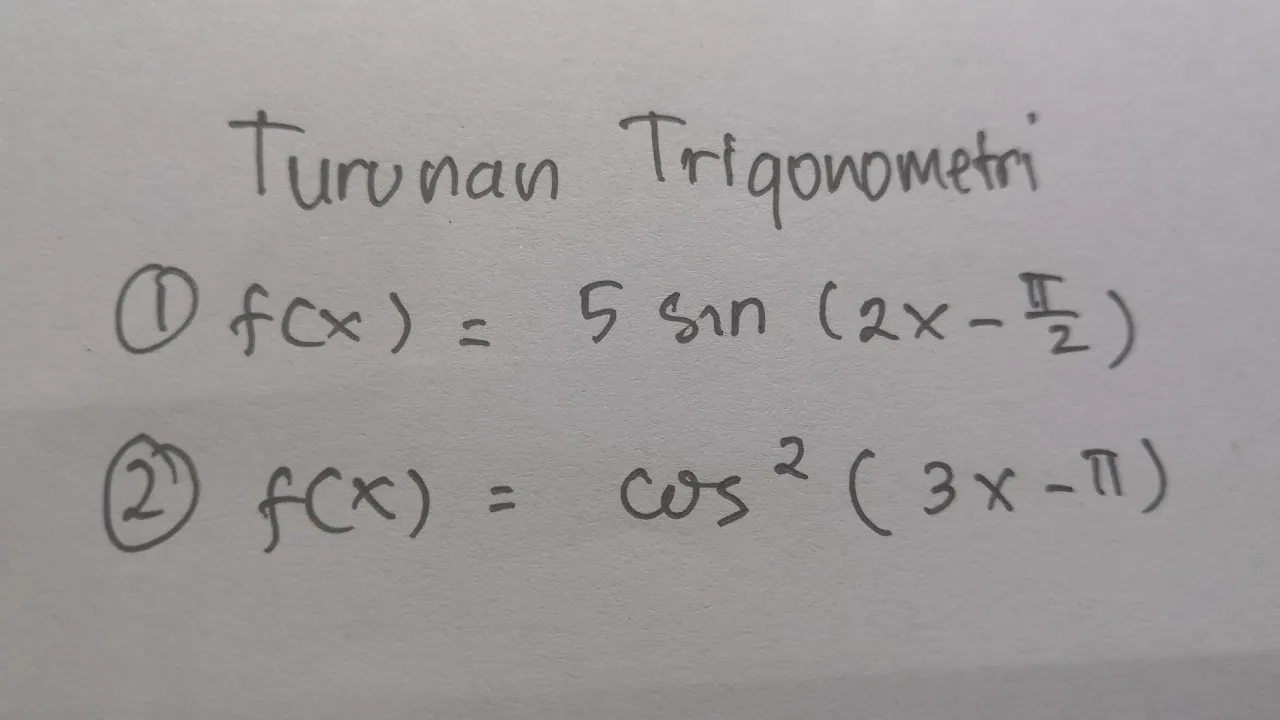 Turunan Trigonometri
① f(x) = 5 sin (2x - π/2)
② f(x) = cos² (3x - π)